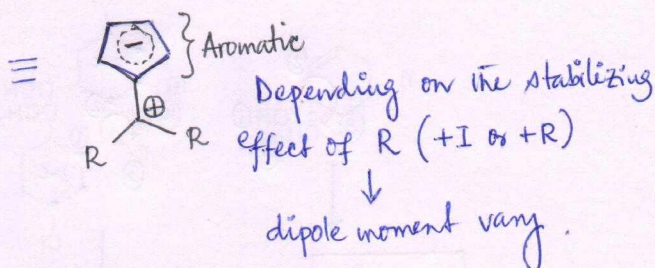 ≡
−
} Aromatic
⊕
R R
Depending on the stabilizing
effect of R (+I or +R)
↓
dipole moment vary.